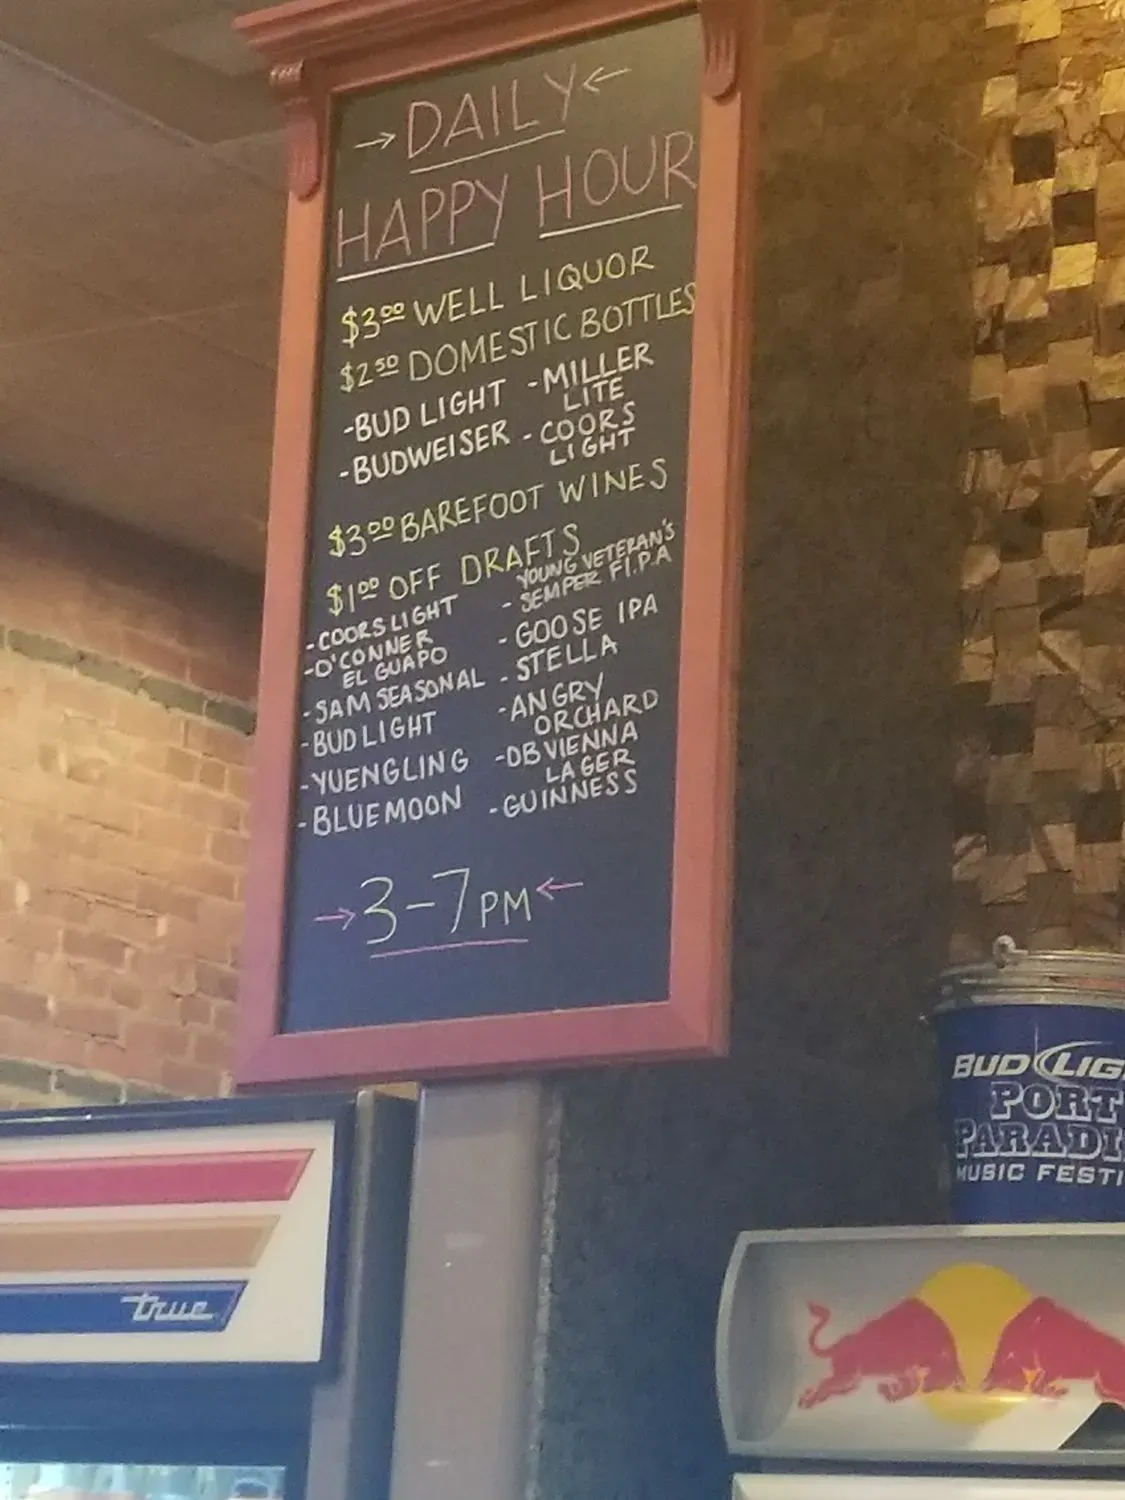 → DAILY ←
HAPPY HOUR
$3.00 WELL LIQUOR
$2.50 DOMESTIC BOTTLES
-BUD LIGHT
-BUDWEISER
-MILLER
LITE
-COORS
LIGHT
$3.00 BAREFOOT WINES
$1.00 OFF DRAFTS
-COORS LIGHT
-O'CONNER
EL GUAPO
-SAM SEASONAL
-BUD LIGHT
-YUENGLING
-BLUE MOON
YOUNG VETERAN'S
- SEMPER FI.P.A
- GOOSE IPA
- STELLA
-ANGRY
ORCHARD
-DB VIENNA
LAGER
-GUINNESS
→ 3-7 PM ←
true
BUD LIG
PORT
PARADI
MUSIC FESTI